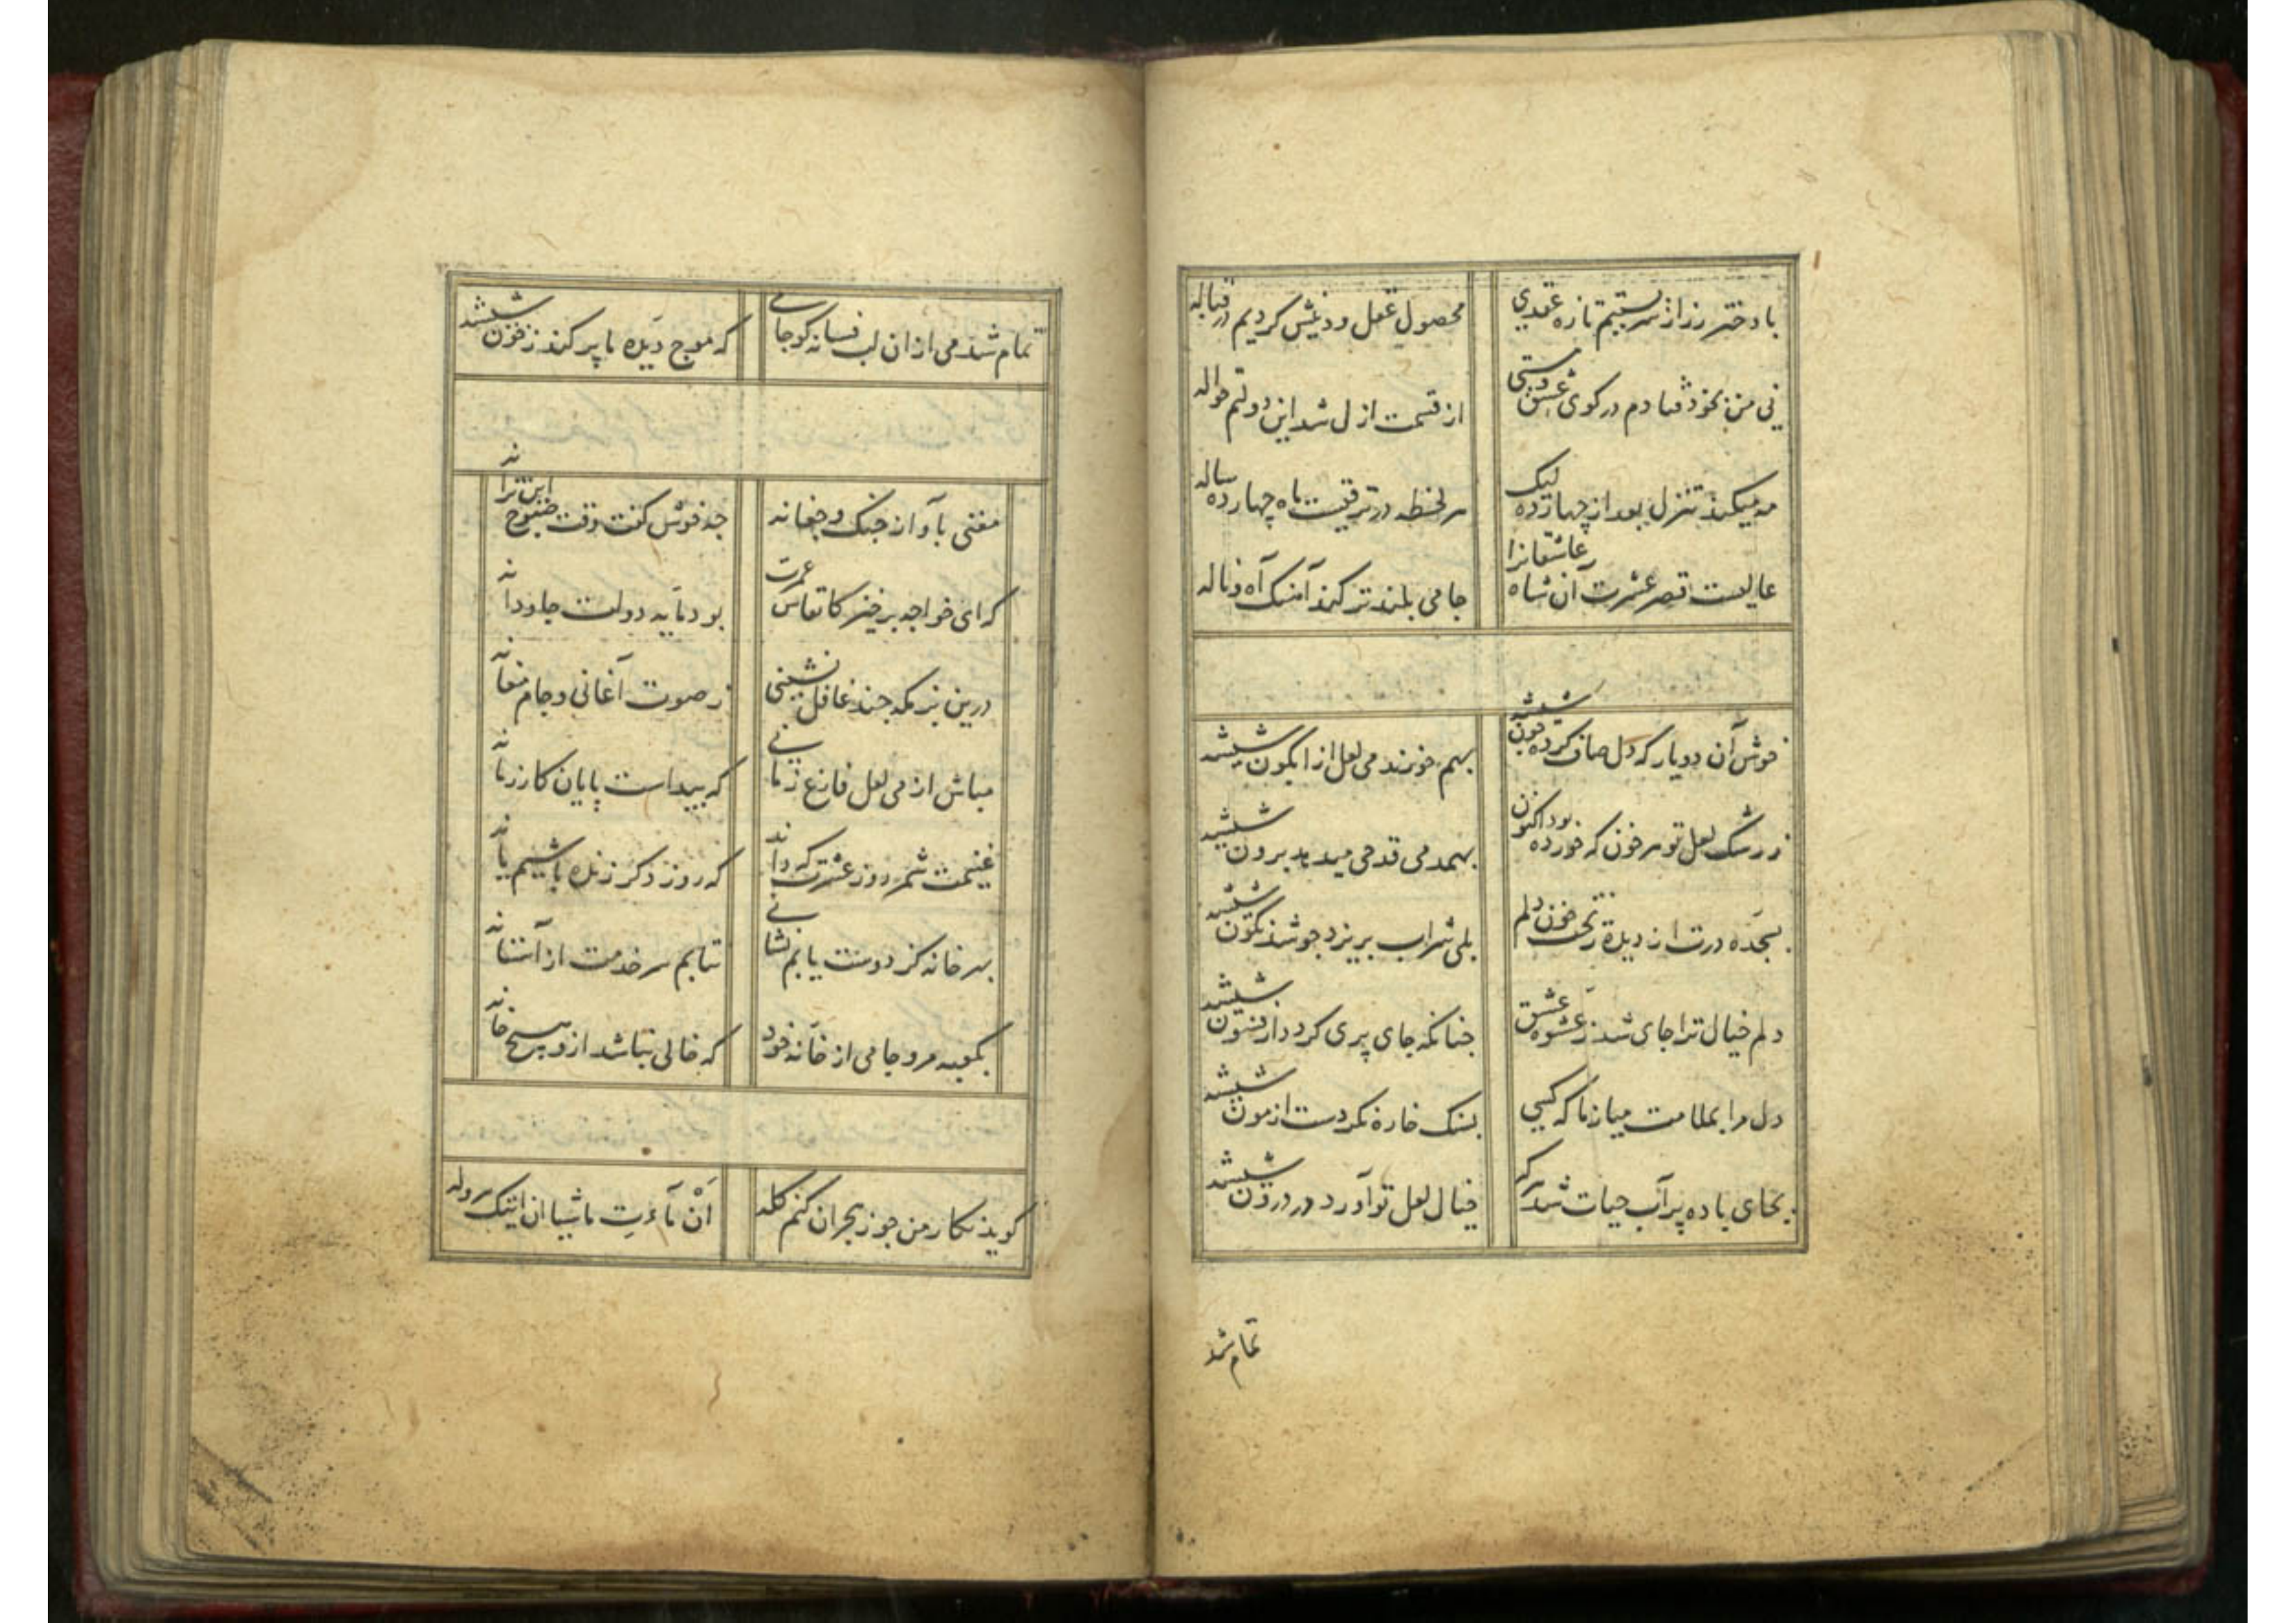 با دختر رز از سر بستیم تازه عقدی محصول عقل و دینش کردیم در قباله
نی من بخود فتادم در کوی عشق و مستی از قسمت ازل شد این دولتم حواله
مه میکند تنزل بعد از چهارده لیک هر لحظه در ترقیست ماه چهارده ساله
عالیست قصر عشرت آن شاه عاشقانرا جامی بلندتر کند آهنک آه و ناله
خوش آن دو یار که دل صاف کرده چون شیشه بهم خورند می لعل از آبکون شیشه
ز رشک لعل تو هر خون که خورده بود اکنون بهمدمی قدحی میدهد برون شیشه
بسجده درت از دیده ریخت خون دلم بلی شراب بریزد چو شد نکون شیشه
دلم خیال ترا جای شد ز عشوه عشق چنانکه جای پری کردد از فسون شیشه
دل مرا بملامت میازما که کسی بسنک خاره نکردست ازمون شیشه
بجای باده پر آب حیات شد هر که خیال لعل تو آورد در درون شیشه
تمام شد
تمام شد می از ان لب فسانه کو جامی که موج دیده ما پر کند ز خون شیشه
مغنی باواز جنک و جغانه چه خوش کفت وقت صبوح این ترانه
که ای خواجه برخیز کانفاس عمرت بود مایه دولت جاودانه
درین بزمکه چند غافل نشینی ز صوت اغانی و جام مغانه
مباش از می لعل فارغ زمانی که پیداست پایان کار زمانه
غنیمت شمر روز عشرت که داند که روز دکر زنده باشیم یا نه
بهر خانه کز دوست یابم نشانی نتابم سر خدمت از آستانه
بکعبه مرو جامی از خانه خود که خالی نباشد ازو هیچ خانه
کوید نکار من چو ز هجران کنم کله